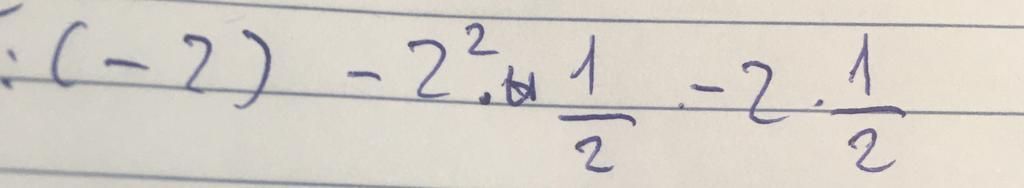 : (-2) - 2² · 1/2 · - 2 · 1/2